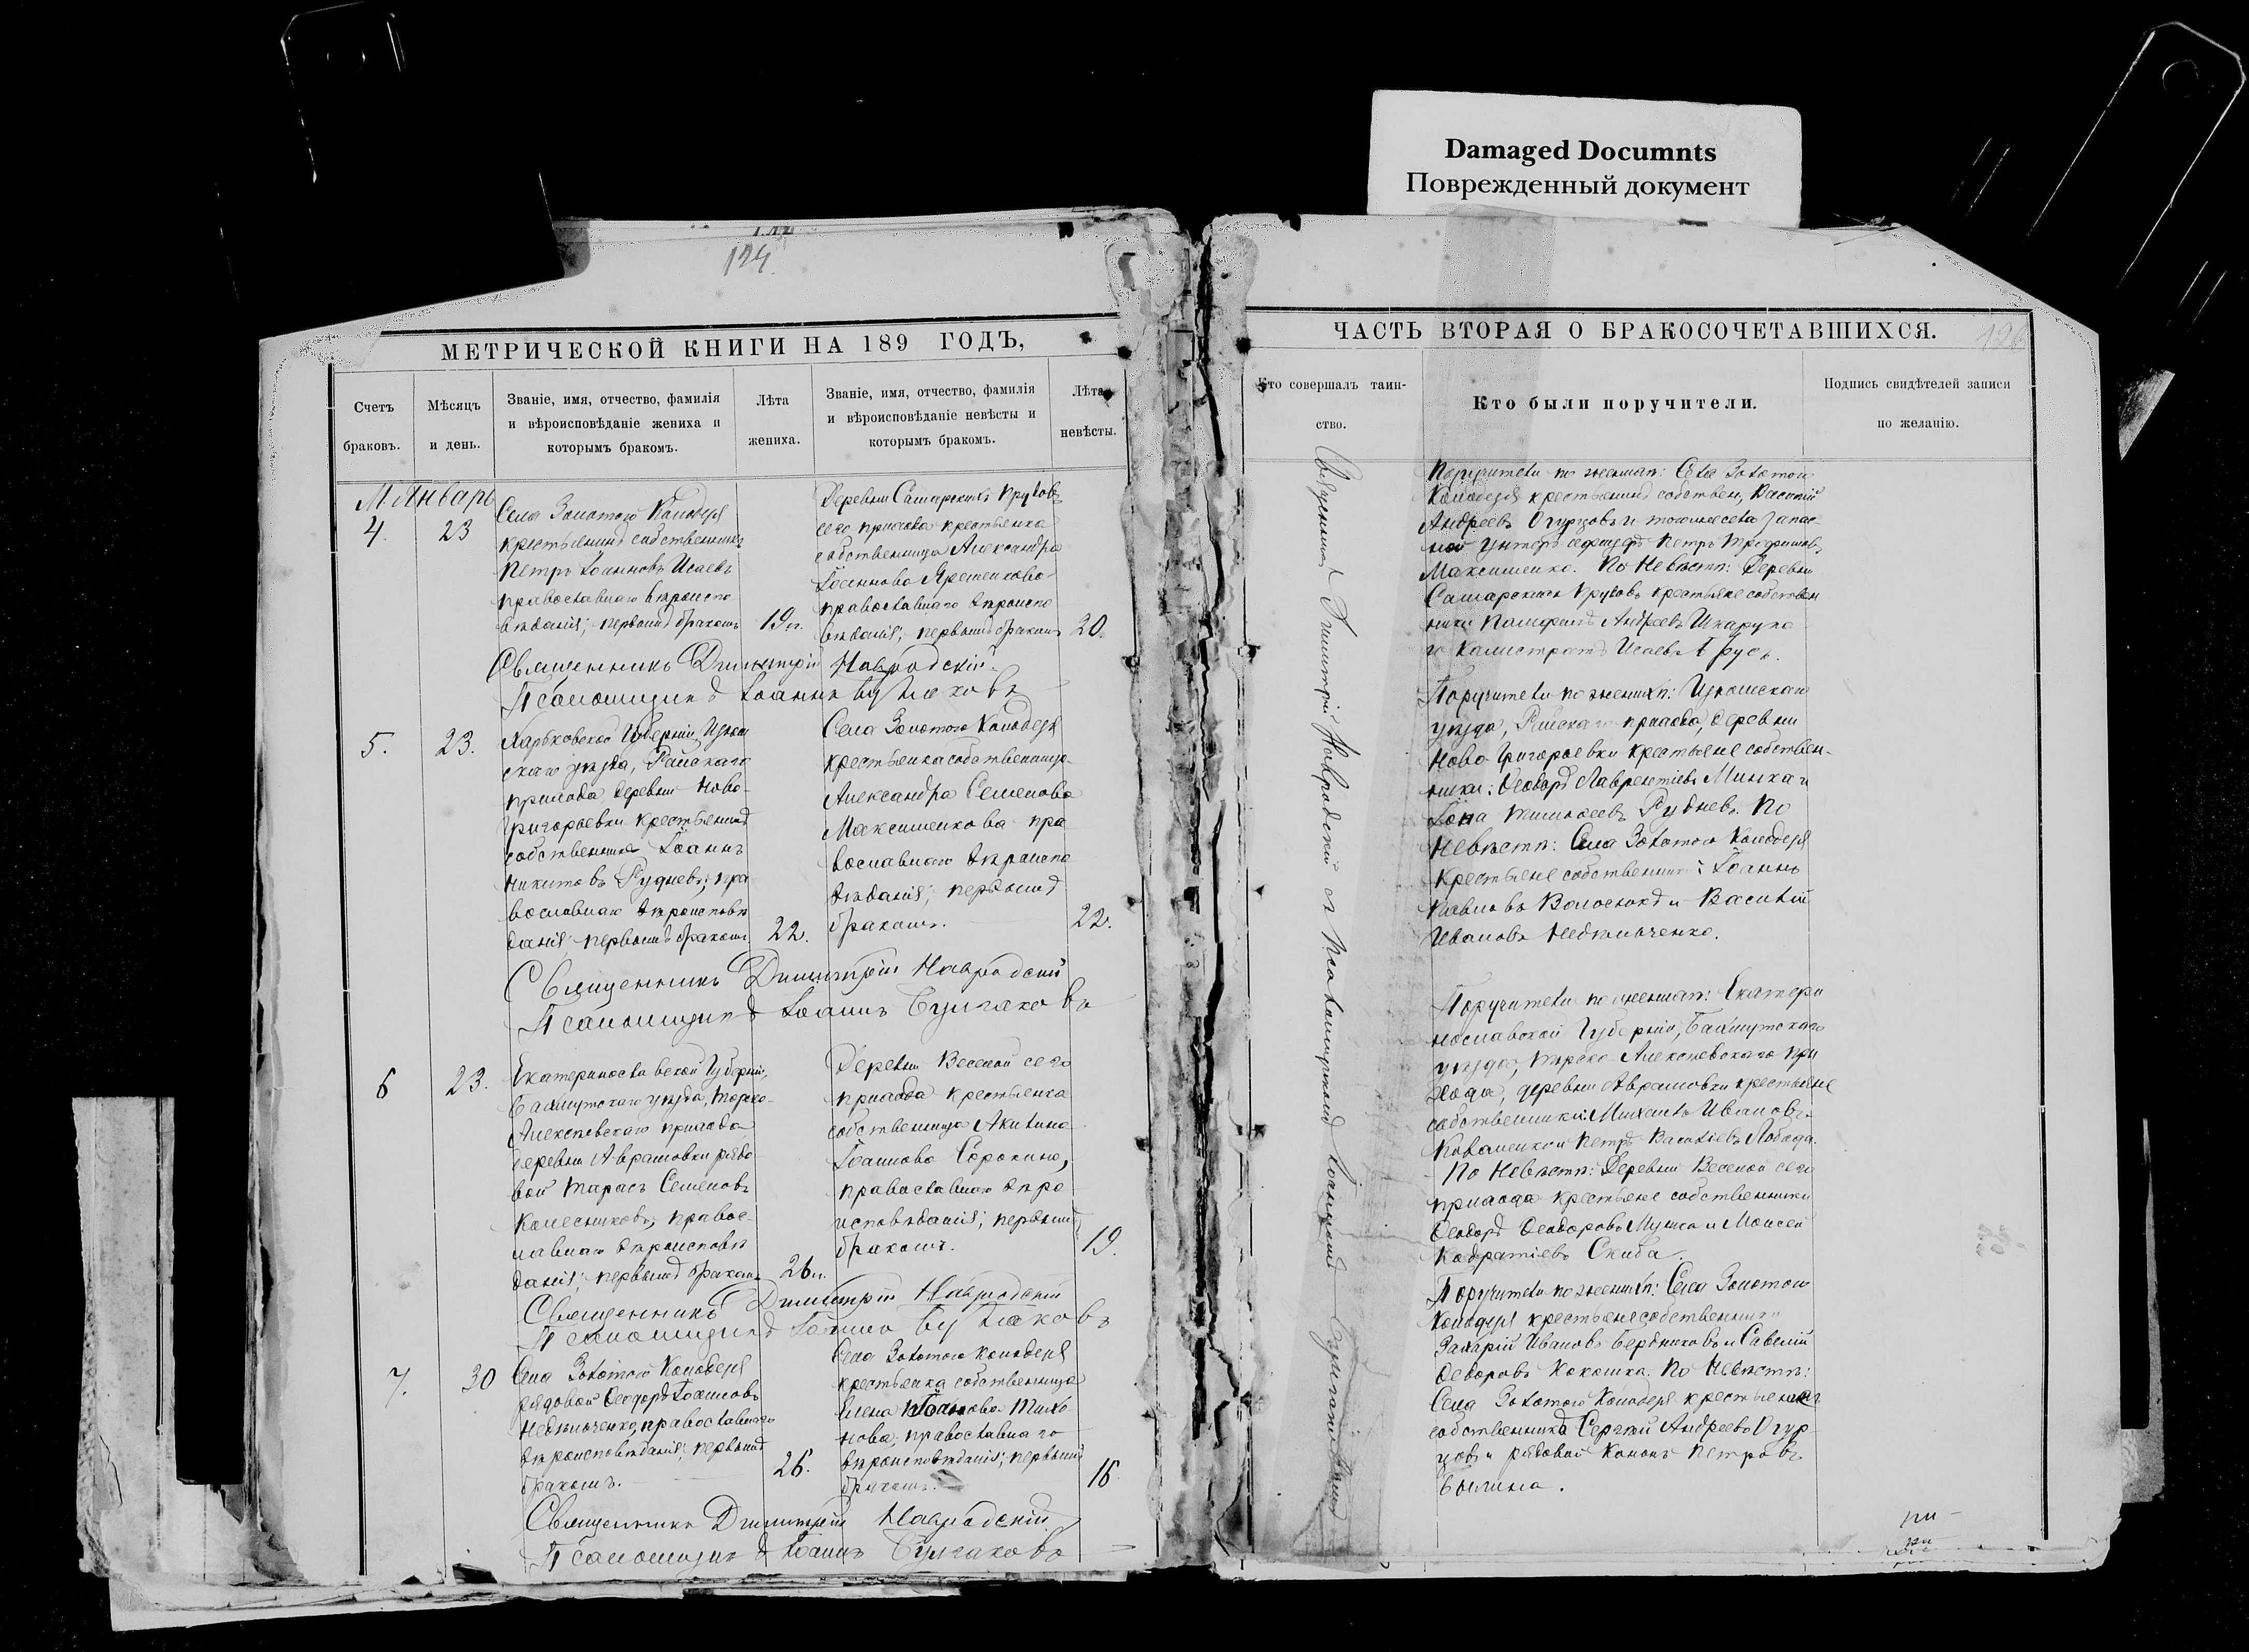 Damaged Documnts
Поврежденный документ
194.
МЕТРИЧЕСКОЙ КНИГИ НА 189 ГОДЪ,
Счетъ браковъ.
Мѣсяцъ и день.
Званіе, имя, отчество, фамилія и вѣроисповѣданіе жениха и которымъ бракомъ.
Лѣта жениха.
Званіе, имя, отчество, фамилія и вѣроисповѣданіе невѣсты и которымъ бракомъ.
Лѣта невѣсты.
М. Январь
4.
23
Села Золотого Колодезя
крестьянинъ собственникъ
Петръ Іоанновъ Исаевъ
православнаго вѣроиспо
вѣданія; первымъ бракомъ
19л.
Деревни Самарскихъ Прудовъ
сего прихода крестьянка
собственница Александра
Іоаннова Яременкова
православнаго вѣроиспо
вѣданія; первымъ бракомъ
20.
Священникъ Димитрій Навродскій
Псаломщикъ Іоаннъ Булгаковъ
5.
23.
Харьковской Губерніи, Изюм
скаго уѣзда, Райскаго
прихода деревни Ново-
Григорьевки крестьянинъ
собственникъ Іоаннъ
Никитовъ Рудневъ; пра
вославнаго вѣроисповѣ
данія; первымъ бракомъ
22.
Села Золотого Колодезя
крестьянка собственница
Александра Семенова
Максименкова пра
вославнаго вѣроиспо
вѣданія; первымъ
бракомъ.
22.
Священникъ Димитрій Навродскій
Псаломщикъ Іоаннъ Булгаковъ
6
23.
Екатеринославской Губерніи,
Бахмутскаго уѣзда,
Алексѣевскаго прихода
деревни Аврамовки рядо
вой Тарасъ Семеновъ
Колесниковъ, правос-
лавнаго вѣроисповѣ
данія; первымъ бракомъ
26л.
Деревни Веселой сего
прихода крестьянка
собственница Акилина
Іоаннова Сорокина,
православнаго вѣро
исповѣданія; первымъ
бракомъ.
19.
Священникъ Димитрій Навродскій
Псаломщикъ Іоаннъ Булгаковъ
7.
30
Села Золотого Колодезя
рядовой Ѳеодоръ Іоанновъ
Недѣльченко, православнаго
вѣроисповѣданія; первымъ
бракомъ.
26.
Села Золотого Колодезя
крестьянка собственница
Елена Іоаннова Тихо
нова, православнаго
вѣроисповѣданія; первымъ
бракомъ.
16
Священникъ Димитрій Навродскій
Псаломщикъ Іоаннъ Булгаковъ
ЧАСТЬ ВТОРАЯ О БРАКОСОЧЕТАВШИХСЯ.
Кто совершалъ таин-
ство.
Кто были поручители.
Подпись свидѣтелей записи
по желанію.
Священникъ Димитрій Навродскій съ Псаломщикомъ Іоанномъ Булгаковымъ
Поручители по женихѣ: Села Золотого
Колодезя крестьянинъ собствен, Василій
Андреевъ Огурцовъ и того же села запас-
ной унтеръ офицеръ Петръ Трофимовъ
Максименко. По Невѣстѣ: Деревни
Самарскихъ Прудовъ крестьяне собствен
ники Андреевъ
Калистратъ Исаевъ
Поручители по женихѣ: Изюмскаго
уѣзда, Райскаго прихода, деревни
Ново-Григорьевки крестьяне собствен-
ники: Ѳеодоръ Лаврентіевъ Минка и
Іона Тимоѳеевъ Рудневъ. По
Невѣстѣ: Села Золотого Колодезя
крестьяне собственники: Іоаннъ
Павловъ Волосюкъ и Василій
Ивановъ Недѣльченко.
Поручители по женихѣ: Екатери
нославской Губерніи, Бахмутскаго
уѣзда, Алексѣевскаго при
хода, деревни Аврамовки крестьяне
собственники: Михаилъ Ивановъ
Коваленко и Петръ Василіевъ Лобода.
По Невѣстѣ: Деревни Веселой сего
прихода крестьяне собственники
Ѳеодоръ Ѳеодоровъ Мушка и Моисей
Кодратіевъ Скиба.
Поручители по женихѣ: Села Золотого
Колодезя крестьяне собственники
Захарій Ивановъ Бердниковъ и Савелій
Ѳедоровъ Кокошка. По Невѣстѣ:
Села Золотого Колодезя крестьянинъ
собственникъ Сергѣй Андреевъ Огур
цовъ и рядовой Кононъ Петровъ
Былина.